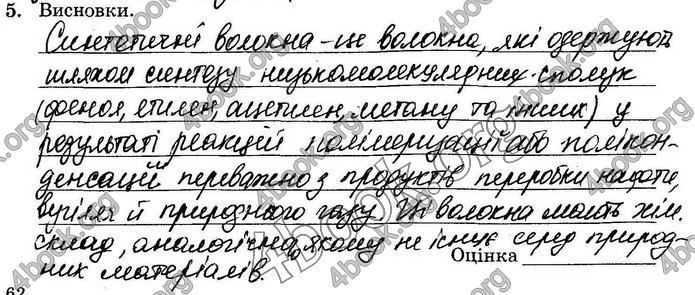 5. Висновки.
Синтетичні волокна – це волокна, які одержують
шляхом синтезу низькомолекулярних сполук
(фенол, етилен, ацетилен, метану та інших) у
результаті реакцій полімеризації або полікон-
денсацій переважно з продуктів переробки нафти,
вугілля й природного газу. Ці волокна мають хім.
склад, аналогічна якому не існує серед природ-
них матеріалів.
Оцінка
62
4book.org